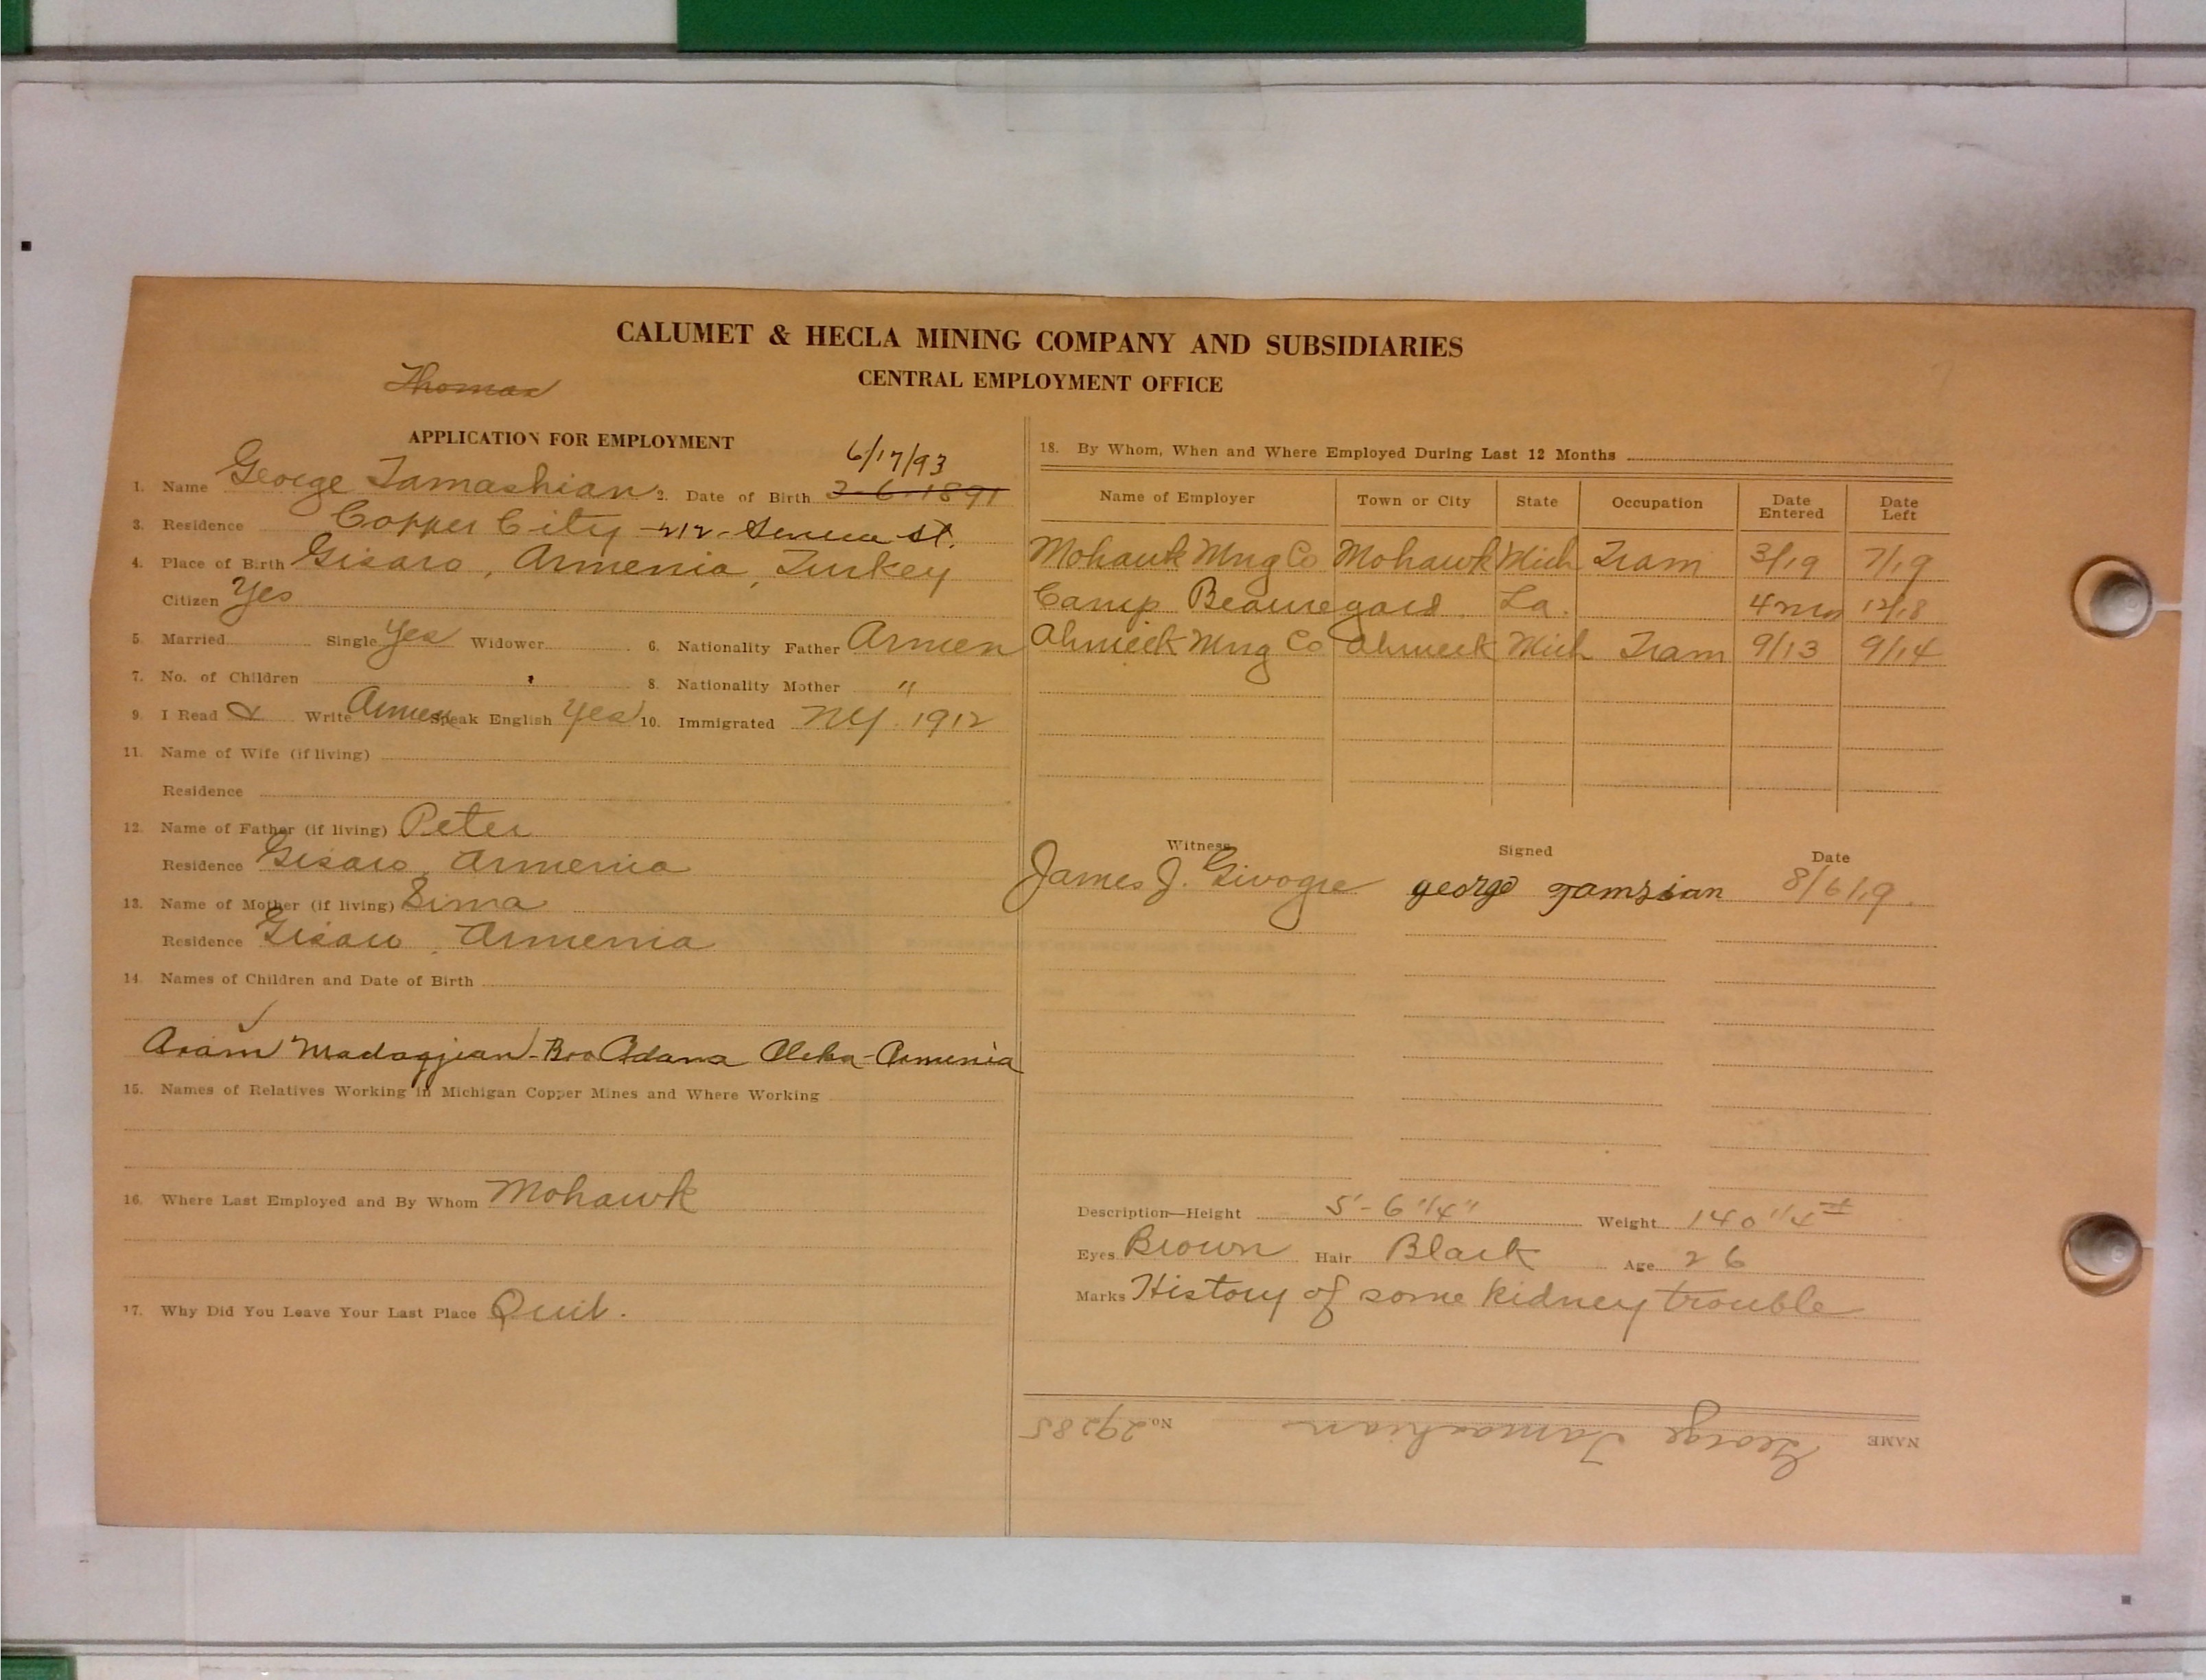 CALUMET & HECLA MINING COMPANY AND SUBSIDIARIES
CENTRAL EMPLOYMENT OFFICE
Thomas
APPLICATION FOR EMPLOYMENT
6/17/93
1. Name George Tamashian 2. Date of Birth 2-6-1891
3. Residence Copper City 212- Seneca St.
4. Place of Birth Gisaro, Armenia, Turkey
Citizen Yes
5. Married Single Yes Widower 6. Nationality Father Armen
7. No. of Children 8. Nationality Mother "
9. I Read & Write Armen Speak English Yes 10. Immigrated NY. 1912
11. Name of Wife (if living)
Residence
12. Name of Father (if living) Peter
Residence Gisaro, Armenia
13. Name of Mother (if living) Sima
Residence Gisaro, Armenia
14. Names of Children and Date of Birth
Aram Madagjian - Bro Adana Armenia
15. Names of Relatives Working in Michigan Copper Mines and Where Working
16. Where Last Employed and By Whom Mohawk
17. Why Did You Leave Your Last Place Quit.
18. By Whom, When and Where Employed During Last 12 Months
Name of Employer Town or City State Occupation Date Entered Date Left
Mohawk Mng Co Mohawk Mich Tram 3/19 7/19
Camp Beauregard La. 4 mos 12/18
Ahmeek Mng Co Ahmeek Mich Tram 9/13 9/14
Witness Signed Date
James J. Givogre george Tamszian 8/6/19.
Description—Height 5'-6 1/4" Weight 140 1/4 #
Eyes Brown Hair Black Age 26
Marks History of some kidney trouble
NAME George Tamashian No. 29285